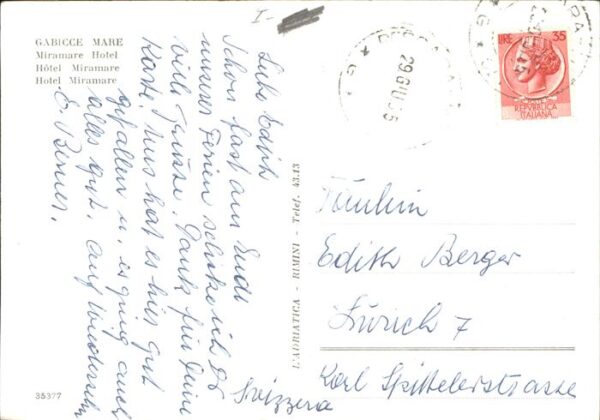 GABICCE MARE
Miramare Hotel
Hôtel Miramare
Hotel Miramare
I-
Liebe Edith
Schon fast am Ende
unserer Ferien schicke ich Dir
viele Grüsse. Danke für Deine
Karte. Uns hat es hier gut
gefallen u. es ging auch
alles gut. Auf Wiedersehen
E.
L'ADRIATICA - RIMINI - Telef. 43.13
29 GIU
LIRE 35
REPVBBLICA
ITALIANA
Fräulein
Edith Berger
Zürich 7
Karl Spittelerstrasse
Svizzera
35377